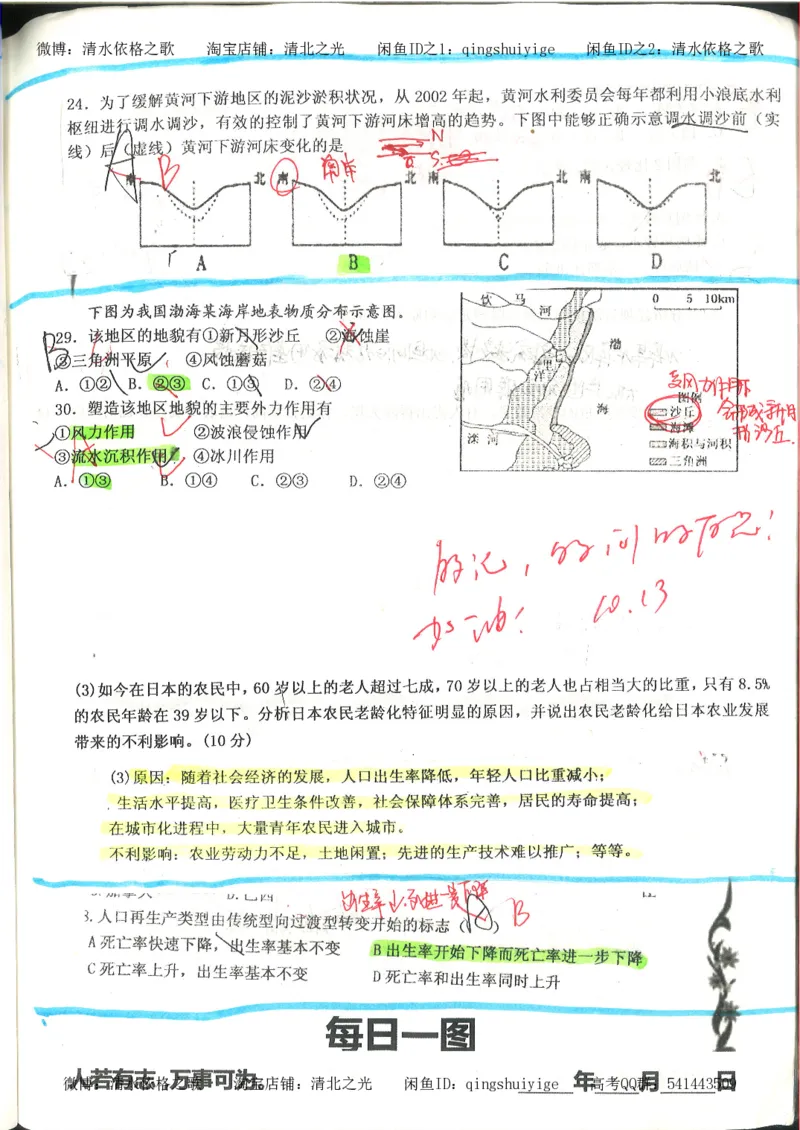 微博：清水依格之歌 淘宝店铺：清北之光 闲鱼ID之1：qingshuiyige 闲鱼ID之2：清水依格之歌
24．为了缓解黄河下游地区的泥沙淤积状况，从 2002 年起，黄河水利委员会每年都利用小浪底水利
枢纽进行调水调沙，有效的控制了黄河下游河床增高的趋势。下图中能够正确示意调水调沙前（实
线）后（虚线）黄河下游河床变化的是
A B 南岸 N S
南 北 南 北 南 北 南 北
A B C D
下图为我国渤海某海岸地表物质分布示意图。
B
29．该地区的地貌有①新月形沙丘 ②海蚀崖
③三角洲平原 ④风蚀蘑菇
A．①② B．②③ C．①③ D．②④
30．塑造该地区地貌的主要外力作用有
①风力作用 ②波浪侵蚀作用
③流水沉积作用 ④冰川作用
A．①③ B．①④ C．②③ D．②④
饮 马 河 0 5 10km
渤
海
七里海
洋
滦 河
图例
沙丘
海滩
海积与河积
三角洲
加油！ 10.13
(3)如今在日本的农民中，60 岁以上的老人超过七成，70 岁以上的老人也占相当大的比重，只有 8.5%
的农民年龄在 39 岁以下。分析日本农民老龄化特征明显的原因，并说出农民老龄化给日本农业发展
带来的不利影响。(10 分)
(3)原因：随着社会经济的发展，人口出生率降低，年轻人口比重减小；
生活水平提高，医疗卫生条件改善，社会保障体系完善，居民的寿命提高；
在城市化进程中，大量青年农民进入城市。
不利影响：农业劳动力不足，土地闲置；先进的生产技术难以推广；等等。
B
3.人口再生产类型由传统型向过渡型转变开始的标志（ ）
A 死亡率快速下降，出生率基本不变 B 出生率开始下降而死亡率进一步下降
C 死亡率上升，出生率基本不变 D 死亡率和出生率同时上升
每日一图
人若有志 万事可为。 年 月 日
微博：清水依格之歌 淘宝店铺：清北之光 闲鱼ID：qingshuiyige 高考QQ群：541443509